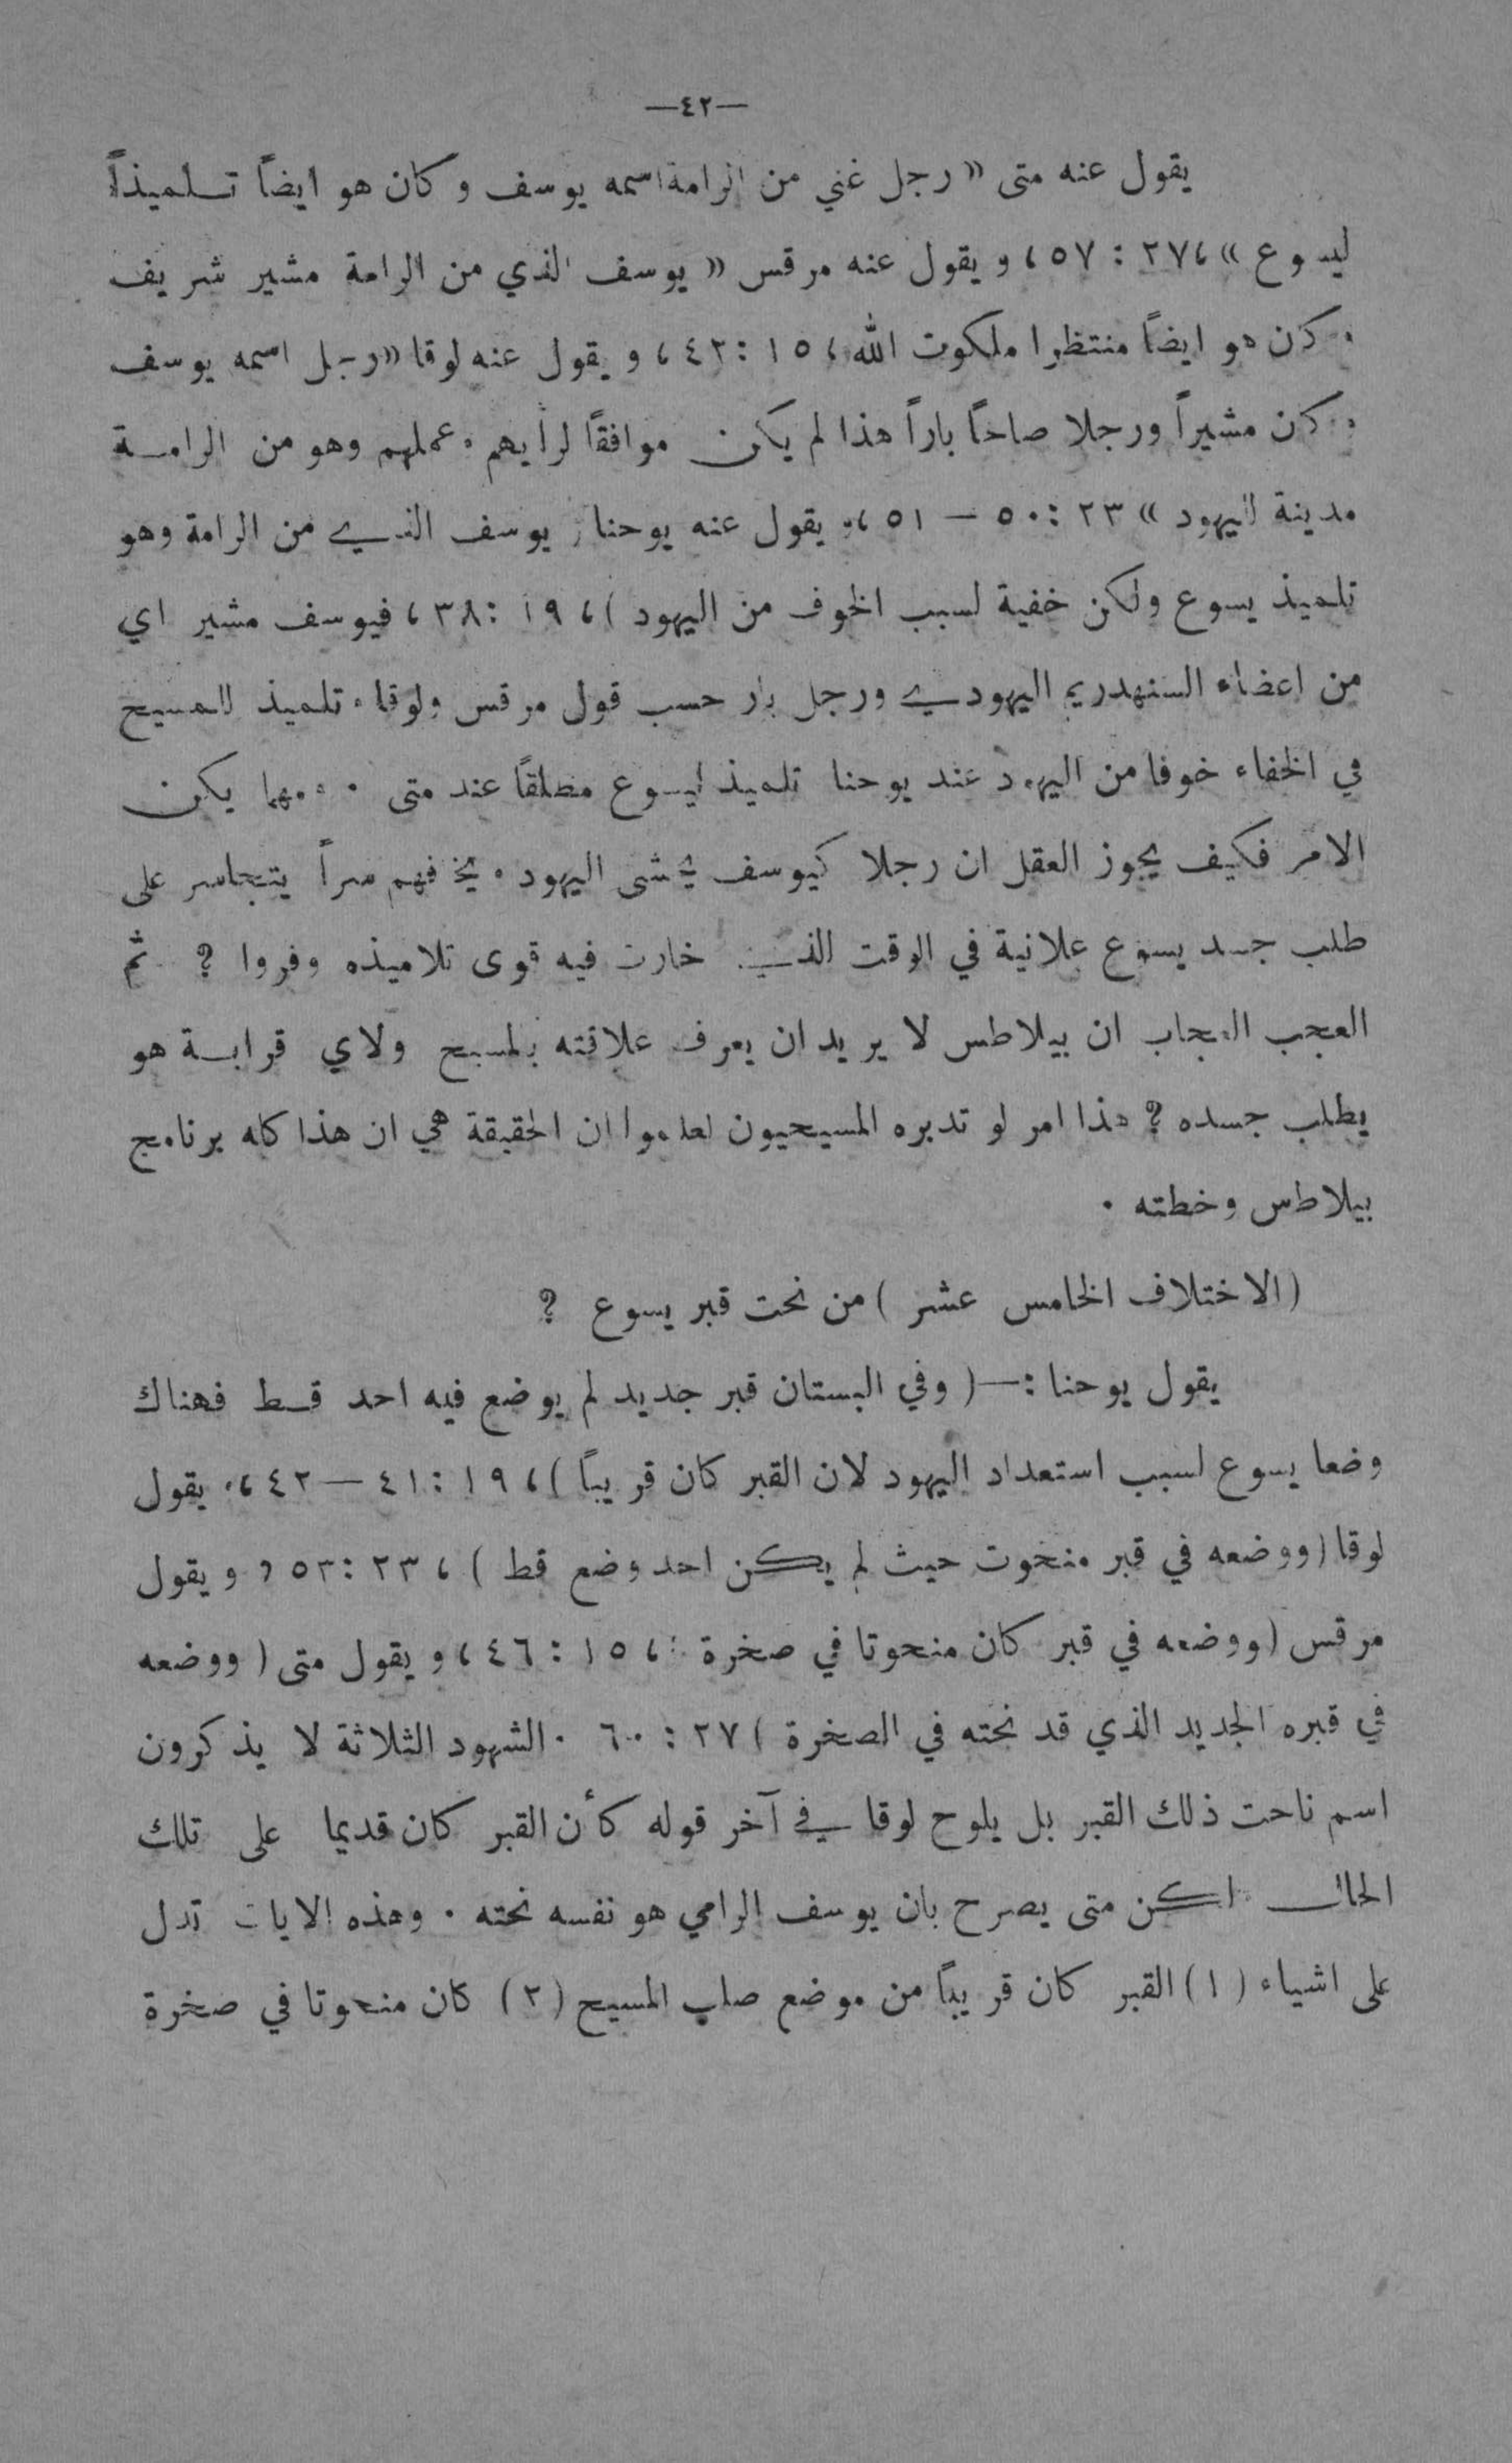 —٤٢—
يقول عنه متى «رجل غني من الرامة اسمه يوسف وكان هو ايضاً تلميذاً
ليسوع» ، ٢٧ : ٥٧ ، و يقول عنه مرقس « يوسف الذي من الرامة مشير شريف
وكان هو ايضاً منتظرا ملكوت الله ، ١٥ : ٤٣ ، و يقول عنه لوقا «رجل اسمه يوسف
وكان مشيراً ورجلا صالحاً باراً هذا لم يكن موافقاً لرأيهم وعملهم وهو من الرامة
مدينة لليهود » ٢٣ : ٥٠ — ٥١ ، و يقول عنه يوحنا ( يوسف الذي من الرامة وهو
تلميذ يسوع ولكن خفية لسبب الخوف من اليهود ) ، ١٩ : ٣٨ ، فيوسف مشير اي
من اعضاء السنهدريم اليهودي ورجل بار حسب قول مرقس ولوقا وتلميذ للمسيح
في الخفاء خوفا من اليهود عند يوحنا تلميذ ليسوع مطلقاً عند متى . ومهما يكن
الامر فكيف يجوز العقل ان رجلا كيوسف يخشى اليهود ويخافهم سراً يتجاسر على
طلب جسد يسوع علانية في الوقت الذي خارت فيه قوى تلاميذه وفروا ؟ ثم
العجب العجاب ان بيلاطس لا يريد ان يعرف علاقته بالمسيح ولاي قرابة هو
يطلب جسده ؟ هذا امر لو تدبره المسيحيون لعلموا ان الحقيقة هي ان هذا كله برنامج
بيلاطس وخطته .
( الاختلاف الخامس عشر ) من نحت قبر يسوع ؟
يقول يوحنا :—( وفي البستان قبر جديد لم يوضع فيه احد قط فهناك
وضعا يسوع لسبب استعداد اليهود لان القبر كان قريباً ) ، ١٩ : ٤١ — ٤٢ ، و يقول
لوقا ( ووضعه في قبر منحوت حيث لم يكن احد وضع قط ) ، ٢٣ : ٥٣ , و يقول
مرقس ( ووضعه في قبر كان منحوتا في صخرة ) ، ١٥ : ٤٦ ، و يقول متى ( ووضعه
في قبره الجديد الذي قد نحته في الصخرة ) ٢٧ : ٦٠ . الشهود الثلاثة لا يذكرون
اسم ناحت ذلك القبر بل يلوح لوقا في آخر قوله كأن القبر كان قديما على تلك
الحال لكن متى يصرح بان يوسف الرامي هو نفسه نحته . وهذه الايات تدل
على اشياء ( ١ ) القبر كان قريباً من موضع صلب المسيح ( ٢ ) كان منحوتا في صخرة